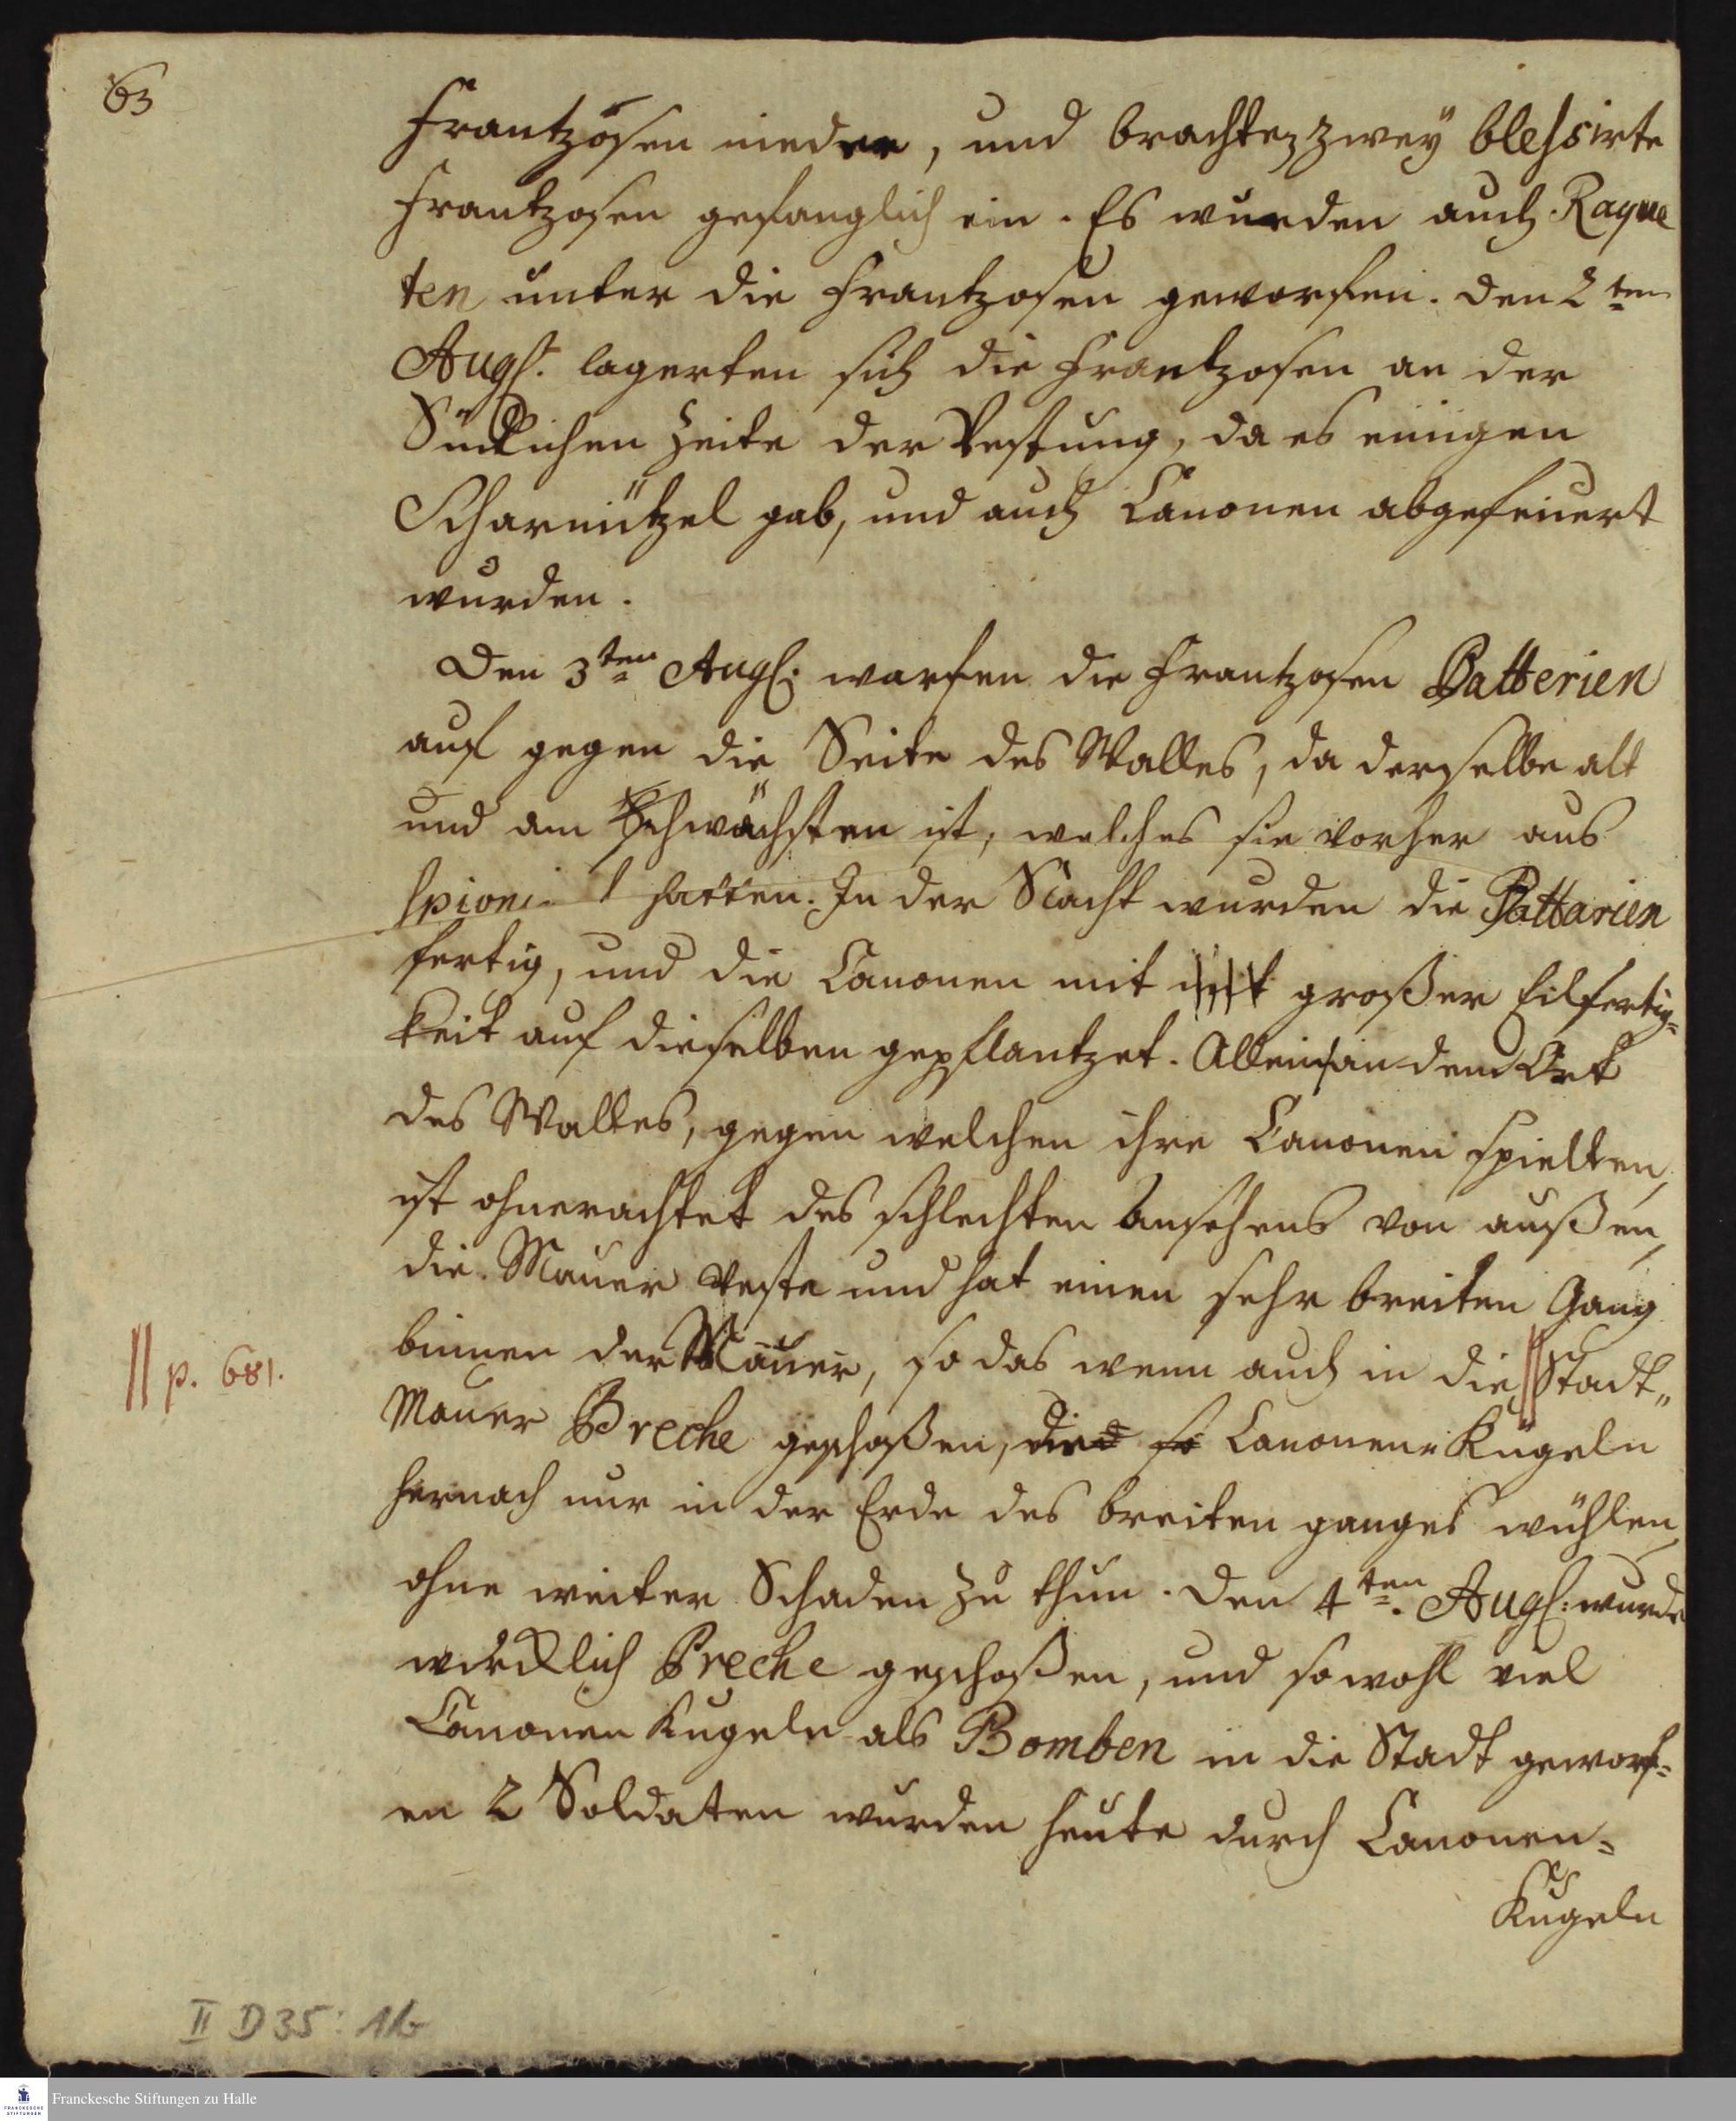 63
Frantzosen nieder, und brachten zwey blessirte
Frantzosen gefanglich ein. Es wurden auch Raque
ten unter die Frantzosen geworfen. Den 2ten
Augs. lagerten sich die Frantzosen an der
Südlichen Seite der Vestung, da es einigen
Scharmützel gab, und auch Canonen abgefeuert
wurden.
Den 3ten Augs: warfen die Frantzosen Batterien
auf gegen die Seite des Walles, da derselbe alt
und am Schwächsten ist, welches sie vorher aus
spionirt hatten. In der Nacht wurden die Battarien
fertig, und die Canonen mit großer Eilfertig=
keit auf dieselben gepflantzet. Allein an dem Ort
des Walles, gegen welchen ihre Canonen spielten,
ist ohnerachtet des schlechten Ansehens von außen,
die Mauer veste und hat einen sehr breiten Gang
binnen der Mauer, so das wenn auch in die || Stadt„
|| p. 681.
Mauer Breche geschoßen, die so Canonen„Kugeln
hernach nur in der Erde des breiten ganges wühlen
ohne weiter Schaden zu thun. Den 4ten. Augs: wurde
würcklich Breche geschoßen, und sowohl viel
Canonen Kugeln als Bomben in die Stadt geworf=
en 2 Soldaten wurden heute durch Canonen=
Kugeln
II D 35: 16
Franckesche Stiftungen zu Halle
FRANCKESCHE STIFTUNGEN